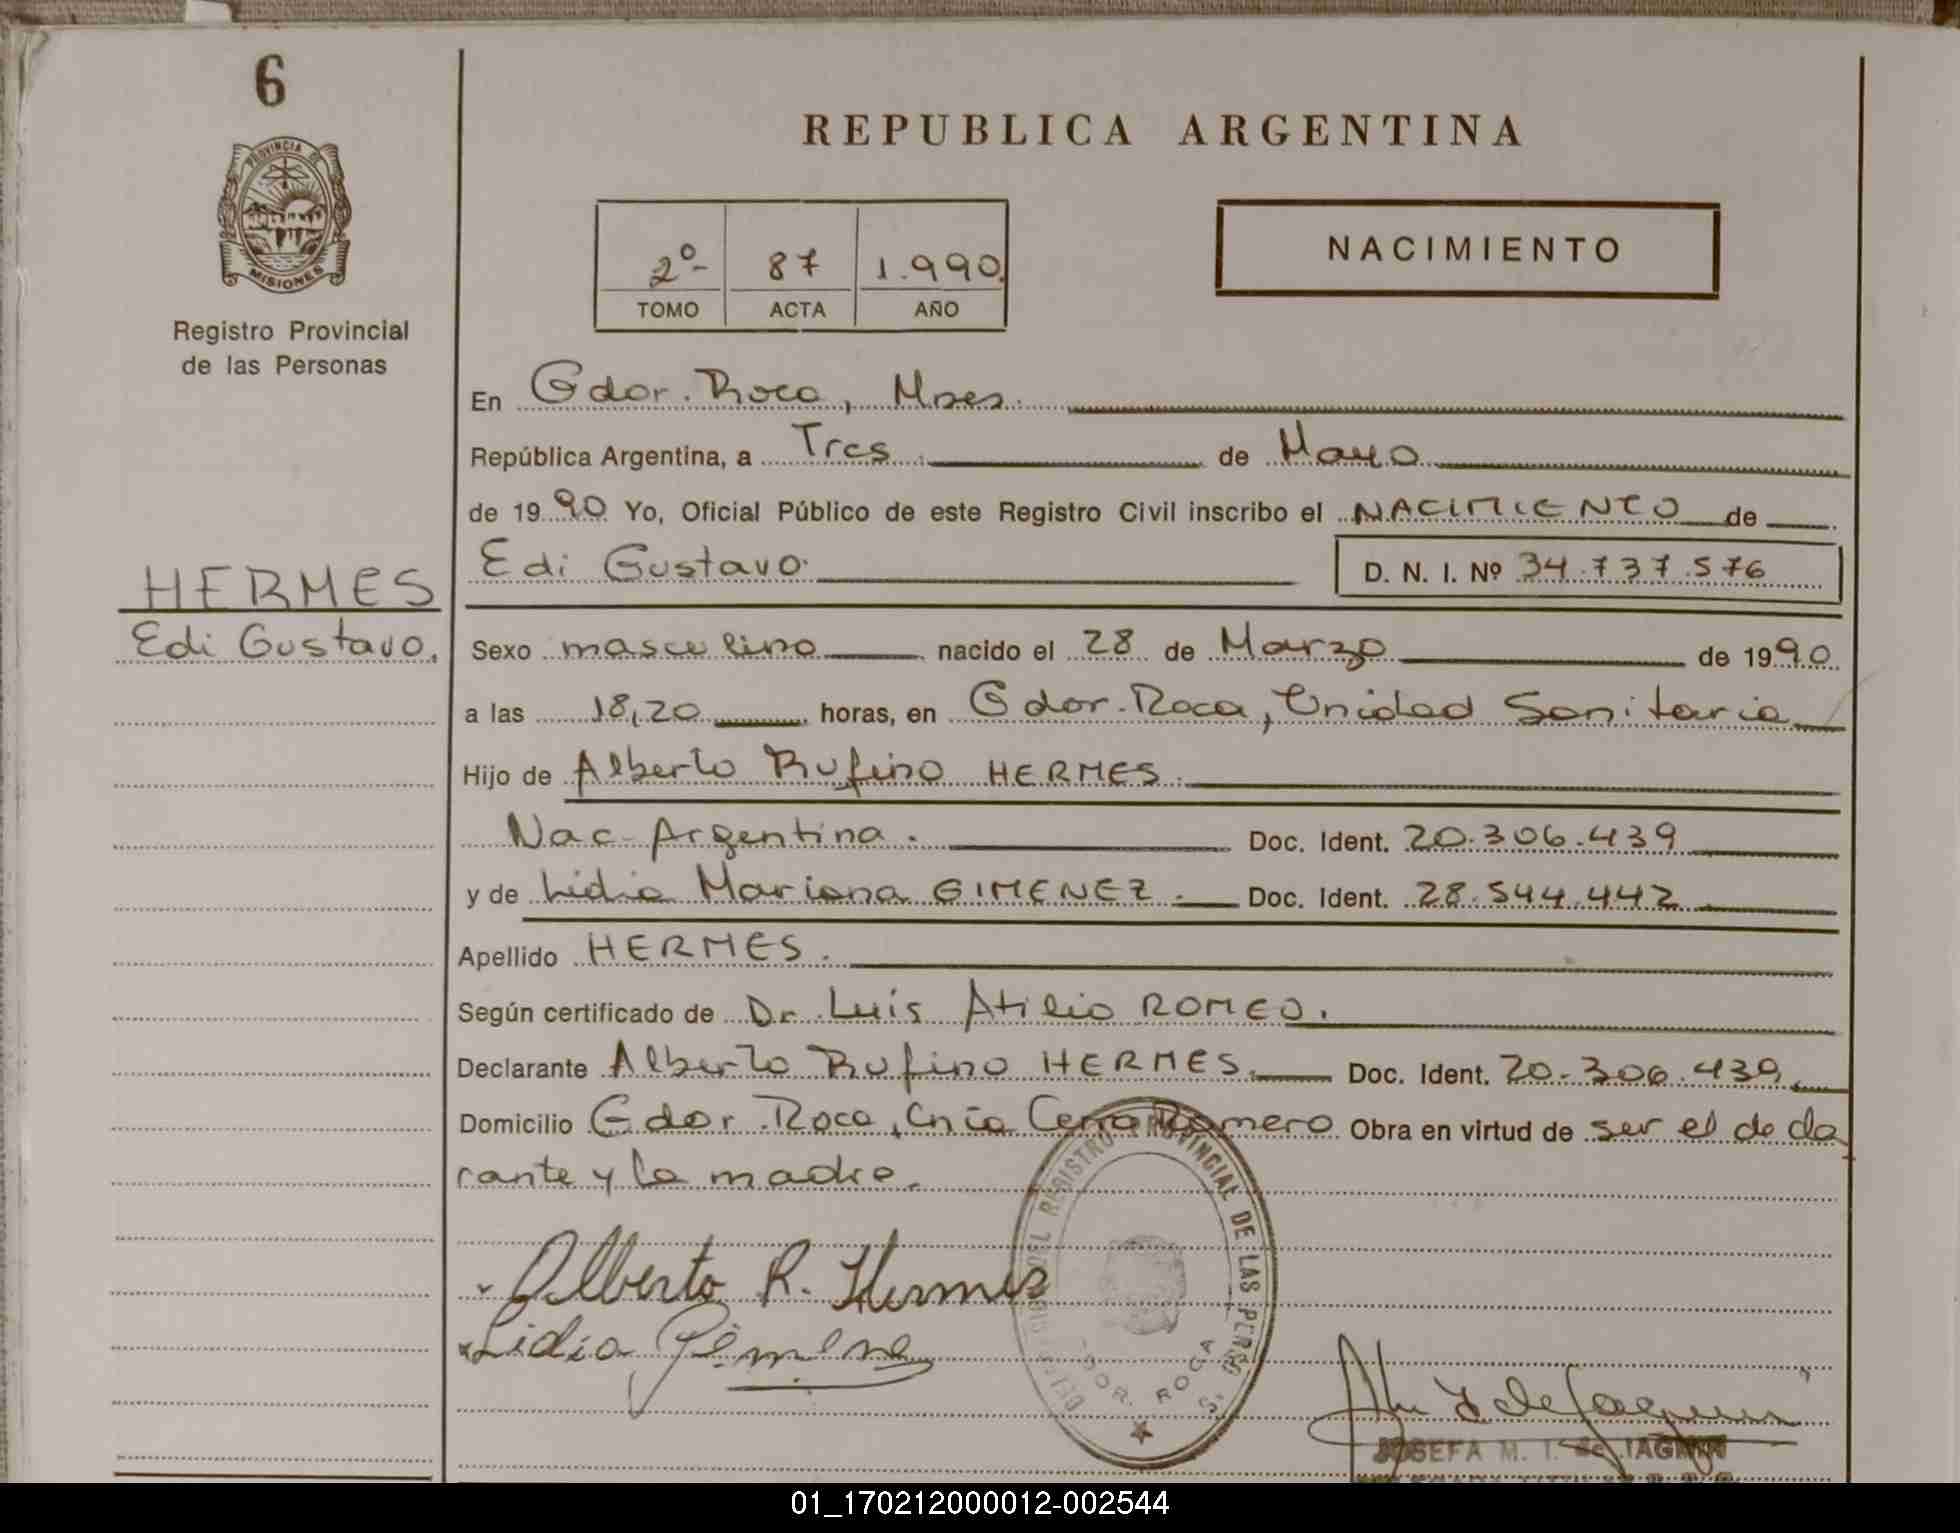 6
PROVINCIA DE
MISIONES
Registro Provincial
de las Personas
HERMES
Edi Gustavo.
REPUBLICA ARGENTINA
2º- 87 1.990.
TOMO ACTA AÑO
NACIMIENTO
En Gdor. Roca, Mnes.
República Argentina, a Tres de Mayo
de 1990 Yo, Oficial Público de este Registro Civil inscribo el NACIMIENTO de
Edi Gustavo. D. N. I. Nº 34.737.576
Sexo masculino nacido el 28 de Marzo de 1990
a las 18,20 horas, en Gdor. Roca, Unidad Sanitaria
Hijo de Alberto Rufino HERMES.
Nac. Argentina. Doc. Ident. 20.306.439
y de Lidia Mariana GIMENEZ. Doc. Ident. 28.544.442
Apellido HERMES.
Según certificado de Dr. Luis Atilio ROMEO.
Declarante Alberto Rufino HERMES. Doc. Ident. 20.306.439
Domicilio Gdor. Roca, Cnia Cerro Romero Obra en virtud de ser el decla
rante y la madre.
Alberto R. Hermes
Lidia Gimenez
DEL REGISTRO PROVINCIAL DE LAS PERS.
GDOR. ROCA
JOSEFA M. I. de
01_170212000012-002544